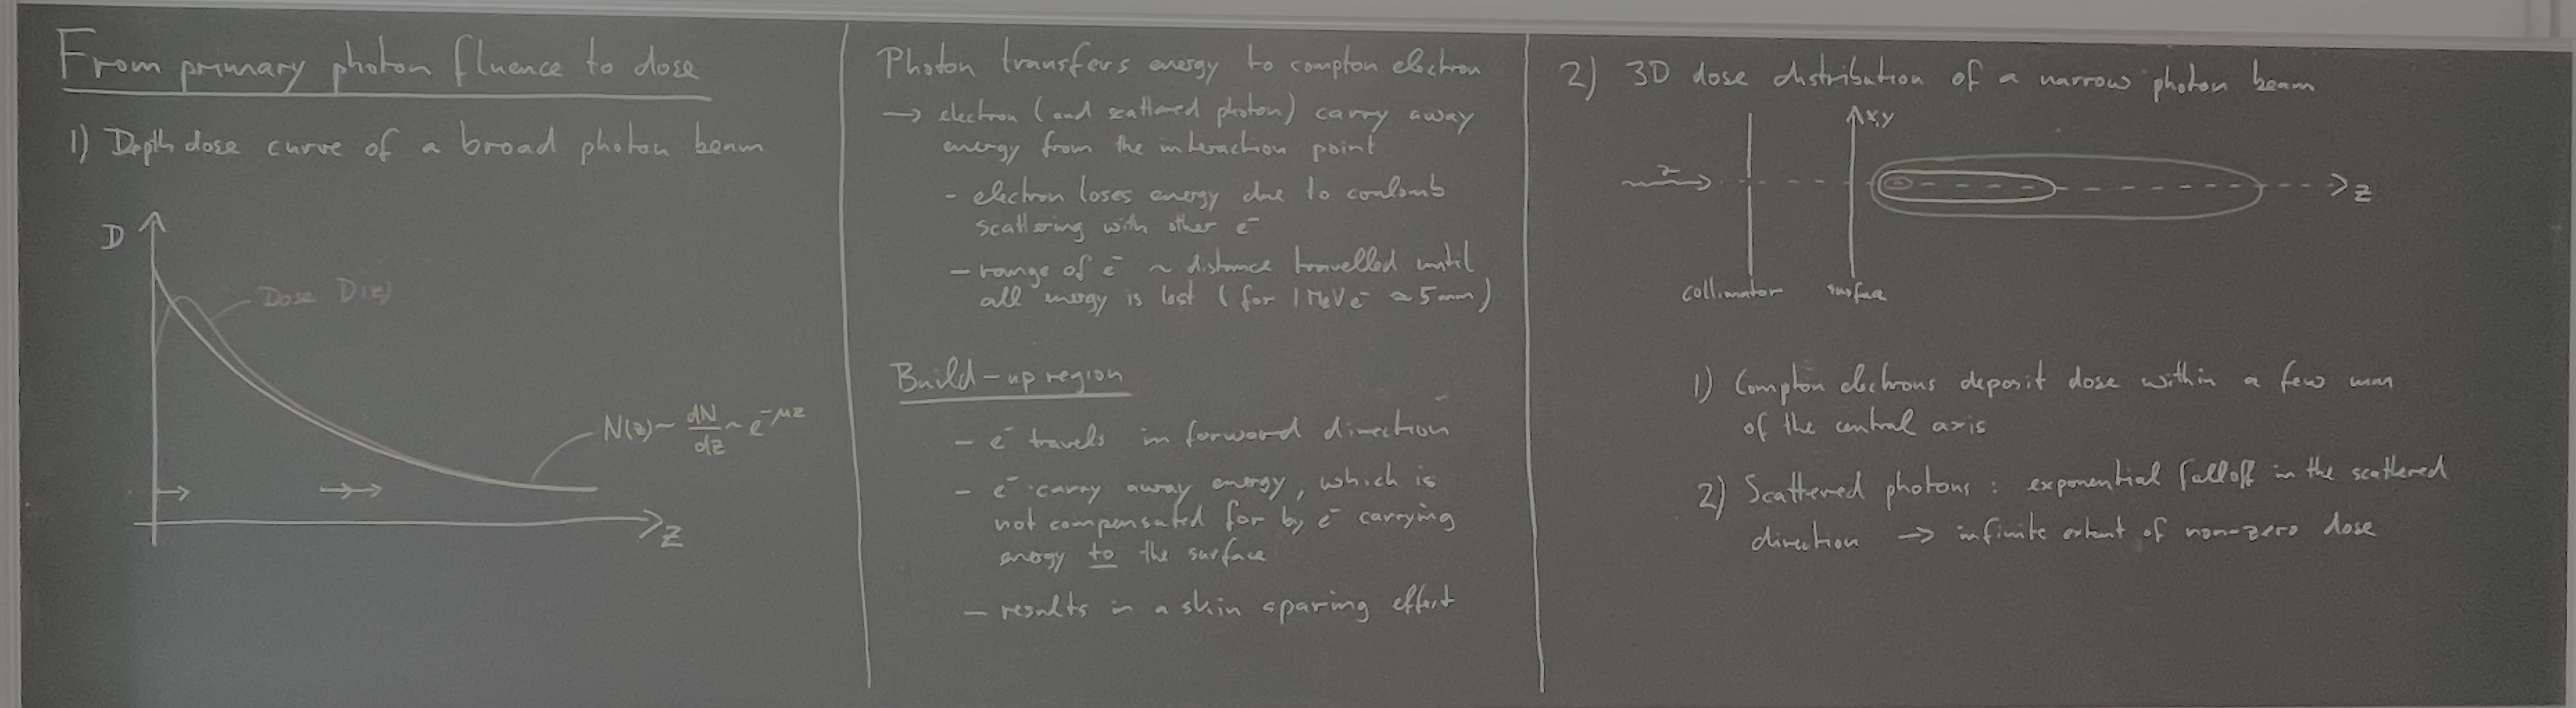 From primary photon fluence to dose
1) Depth dose curve of a broad photon beam
D
Dose D(z)
N(z) ~ dN/dz ~ e^-μz
z
Photon transfers energy to compton electron
→ electron (and scattered photon) carry away
energy from the interaction point
- electron loses energy due to coulomb
scattering with other e⁻
- range of e⁻ ~ distance travelled until
all energy is lost (for 1 MeV e⁻ ≈ 5 mm)
Build-up region
- e⁻ travels in forward direction
- e⁻ carry away energy, which is
not compensated for by e⁻ carrying
energy to the surface
- results in a skin sparing effect
2) 3D dose distribution of a narrow photon beam
x,y
z
collimator
surface
1) Compton electrons deposit dose within a few mm
of the central axis
2) Scattered photons : exponential falloff in the scattered
direction → infinite extent of non-zero dose